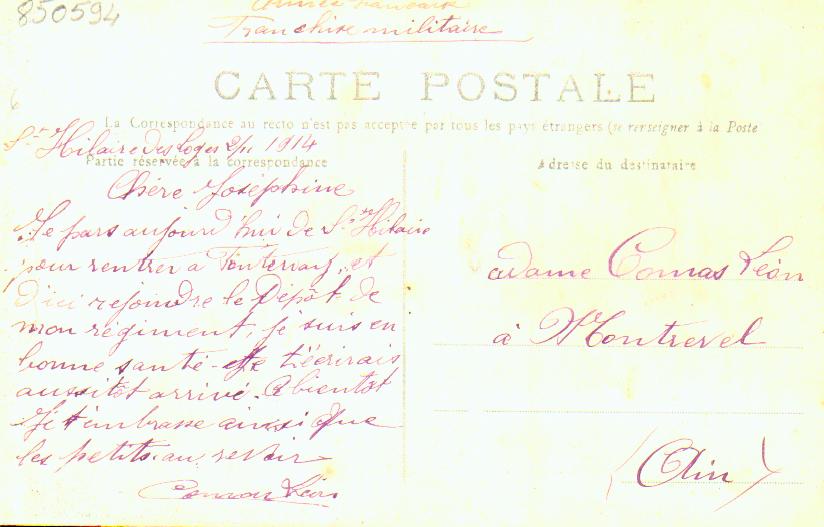 850594
Armée française
Franchise militaire
CARTE POSTALE
La Correspondance au recto n'est pas acceptée par tous les pays étrangers (se renseigner à la Poste
St Hilaire des Loges 2/11 1914
Partie réservée à la correspondance
Adresse du destinataire
Chère Joséphine
Je pars aujourd'hui de St Hilaire
pour rentrer a Fontenay, et
d'ici rejoindre le Dépôt de
mon régiment, je suis en
bonne santé Je t'écrirais
aussitôt arrivé. A bientôt
Je t'embrasse ainsi que
les petits. au revoir
Comas Léon
adame Comas Léon
à Montrevel
(Ain)